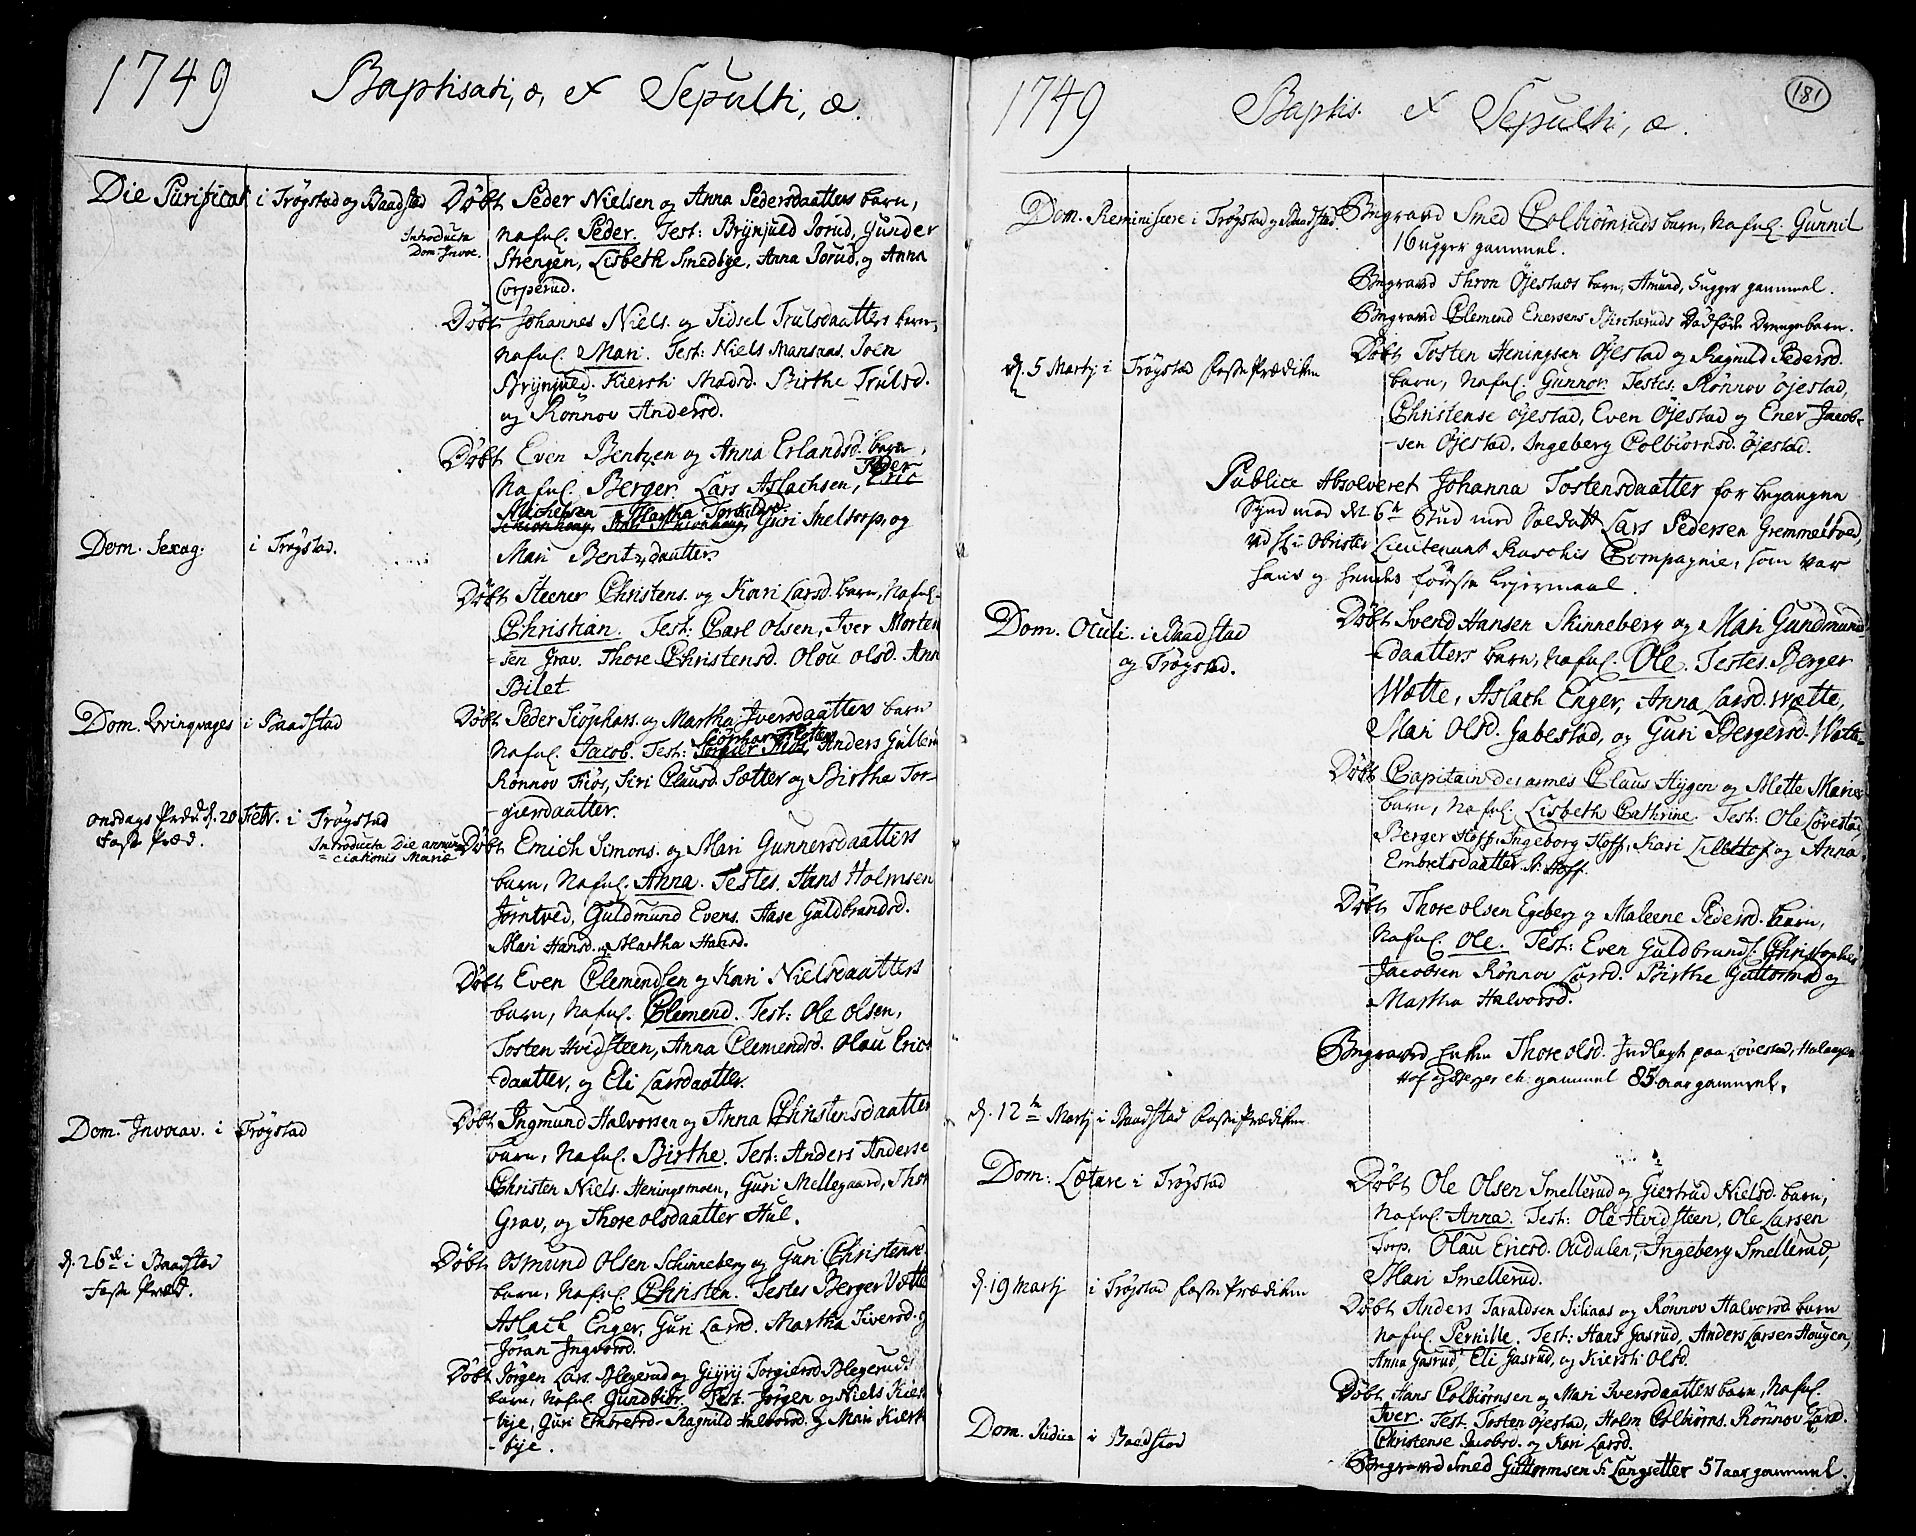 1749 Baptisati, æ, et Sepulti, æ.
Die Purificat i Trøgstad og Baadstad
Introducta
Dom Invoc.
Døbt Peder Nielsen og Anna Pedersdaatters barn,
Nafnl. Peder. Test: Brynjuld Jorud, Gunder
Strengen, Lisbeth Smedbye, Anna Jorud, og Anna
Corperud.
Døbt Johannes Niels. og Sidsel Trulsdaatters barn,
Nafnl. Mari. Test: Niels Mansaas. Joen
Brynjuld. Kiersti Madsd. Birthe Trulsd.
og Rønnov Andersd.
Døbt Even Bentzen og Anna Erlandsd. barn,
Nafnl. Berger. Lars Aslachsen, Peder Eric
Michelsen Martha Torkilds
Guri Skeltorp, og
Mari Bentzdaatter.
Dom. Sexag. i Trøgstad.
Døbt Steener Christens. og Kari Larsd. barn, Nafnl.
Christian. Test: Carl Olsen, Iver Morten
-sen Grav. Thore Christensd. Olou Olsd. Ann
Bilet
Dom. Qvinqvages i Baadstad
Døbt Peder Siøphars. og Martha Iversdaatters barn
Nafnl. Jacob. Test: Anders Gullem
Rønnov Fiøs, Siri Clausd. Sætter og Birthe Tor-
-giersdaatter.
Onsdags Præd. d. 20 Febr. i Trøgstad
Faste Præd.
Introducta Die annun
-ciationis Mariæ
Døbt Emich Simons. og Mari Gunnersdaatters
barn, Nafnl. Anna. Testes. Hans Holmsen
Jørntved, Guldmund Evens. Aase Guldbrandsd.
Mari Hansd. og Martha Hansd.
Døbt Even Clemendsen og Kari Nielsdaatters
barn, Nafnl. Clemend. Test: Ole Olsen,
Tosten Hvidsteen, Anna Clemendsd. Olau Erics
daatter, og Eli Larsdaatter.
Dom. Invocav. i Trøgstad
Døbt Ingmund Halvorsen og Anna Christensdaatter
barn, Nafnl. Birthe. Test: Anders Anderse
Christen Niels. Heningsmoen, Guri Mellegaard, Thor
Grav, og Thore Olsdaatter Hul.
d. 26de i Baadstad
Faste Præd.
Døbt Osmund Olsen Schinneberg og Guri Christense
barn, Nafnl. Christen. Testes Berger Vætte
Aslach Enger, Guri Larsd. Martha Siversd. og
Jøran Ingvorsd.
Døbt Jørgen Lars. Blegerud og Torgiersd Blegeruds
barn, Nafnl. Gundbior. Test. Jørgen og Niels Kirke
-bye, Guri Embretsd. Ragnild Halvorsd. og Mari Kierk
-bye.
1749 Baptis. et Sepulti, æ.
181
Dom. Reminiscere i Trøgstad og Baadstad.
Begraved Smed Colbiørnruds barn, Nafnl. Gunnil
16 ugger gammel.
Begraved Thron Øjestads barn, Amund, 5 ugger gammel.
Begraved Clemend Enersens Bircheruds Dødføde Drengebarn.
d. 5 Martj i Trøgstad Faste Prædiken
Døbt Tosten Heningsen Øjestad og Ragnild Pedersd.
barn, Nafnl. Gunnor. Testes: Rønnov Øjestad,
Christense Øjestad, Even Øjestad og Ener Jacob-
-sen Øjestad, Ingeberg Colbiørnsd. Øjestad.
Publice Absolveret Johanna Tostensdaatter for begangen
Synd mod det 6te Bud med Soldatt Lars Pedersen Gremmestved,
ved Hr. Obriste Lieutenant Raschis Compagnie, som var
hans og hendes første Lejermaal.
Dom. Oculi. i Baadstad
og Trøgstad.
Døbt Svend Hansen Skinneberg og Mari Gundmund
-daatters barn, Nafnl. Ole. Testes. Berger
Wætte, Aslach Enger, Anna Larsd. Wætte,
Mari Olsd. Gabestad, og Guri Bergersd. Wætte
Døbt Capitain des armes Claus Hygen og Mette Maries
barn, Nafnl. Lisbeth Cathrine. Test: Ole Løvestad
Berger Hoff, Ingeborg Hoff, Kari Lilletof og Anna
Embretsdaatter N. Hoff.
Døbt Thore Olsen Egeberg og Maleene Pedersd. barn,
Nafnl. Ole. Test: Even Guldbrands. Christopher
Jacobsen Rønnov Larsd. Birthe Guttormsd og
Martha Halvorsd.
Begraved Enken Thore Olsd. Indlagt paa Løvestad,
gammel 85. aar gammel.
d. 12te Martj i Baadstad Faste Prædiken
Dom: Lætare i Trøgstad
Døbt Ole Olsen Smellerud og Giertrud Nielsd. barn,
Nafnl. Anna. Test: Ole Hvidsteen, Ole Larsen
Torp. Olau Ericsd. Ovidalen, Ingeberg Smellerud,
Mari Smellerud.
d. 19 Martj i Trøgstad Faste Prædiken
Døbt Anders Taraldsen Siliaas og Rønnov Halvorsd. barn
Nafnl. Pernille. Test: Hans Gasrud, Anders Larsen Hougen,
Anna Gasrud, Eli Gasrud, og Kiersti Olsd.
Døbt Hans Colbiørnsen og Mari Iversdaatters barn, Nafnl.
Iver. Test. Tosten Øjestad, Holm Colbiørns. Rønnov Larsd.
Christense Jacobsd. og Kari Larsd.
Dom. Judica i Baadstad
Begraved Smed Guttormsen S. Langsetter 57 aar gammel.